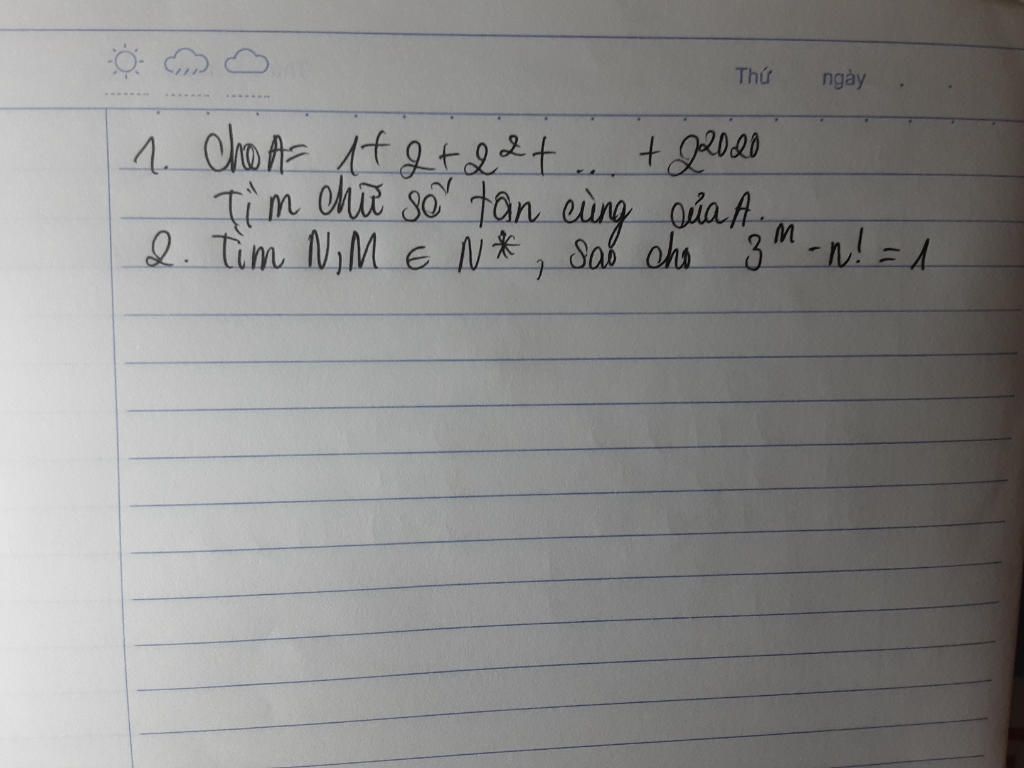 Thứ ngày . .
1. Cho A = 1 + 2 + 2² + ... + 2²⁰²⁰
Tìm chữ số tận cùng của A.
2. Tìm N, M ∈ N*, sao cho 3ᵐ - n! = 1